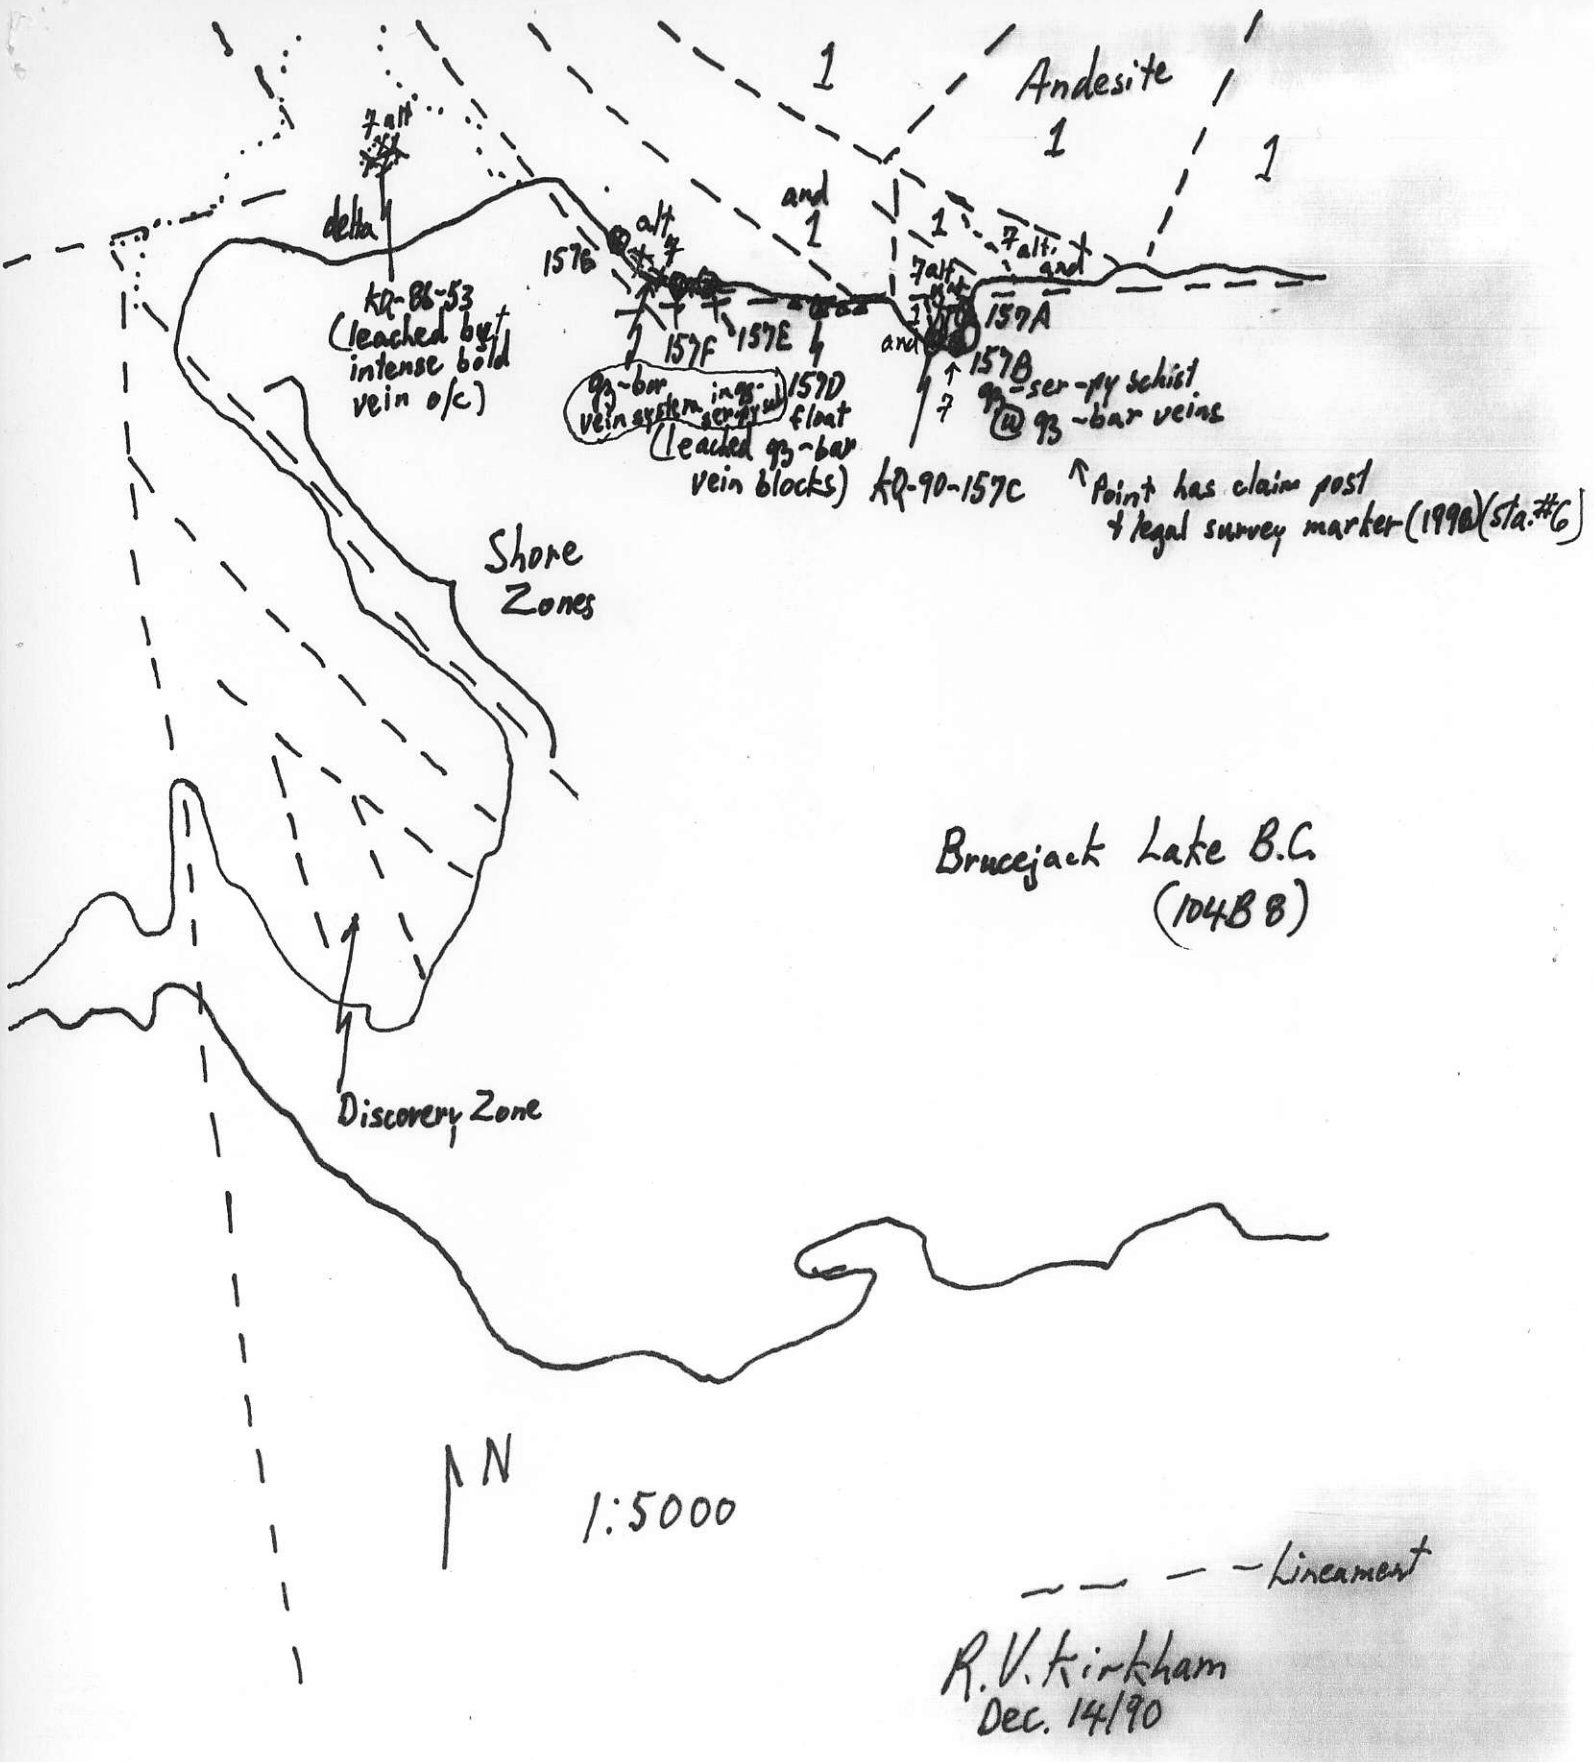 1
Andesite
1
1
7 alt
and
1
1
7
alt.
and
delta
alt
7
157G
7 alt
1
and
KQ-86-53
(leached but
intense bold
vein o/c)
157F
157E
157A
157B
qz-ser-py schist
@ qz-bar veins
7
qz-bar
vein system in qz-
ser-py sch
157D
float
(leached qz-bar
vein blocks)
KQ-90-157C
Point has claim post
+ legal survey marker (1990) (Sta. #6)
Shore
Zones
Brucejack Lake B.C.
(104B 8)
Discovery Zone
N
1:5000
Lineament
R.V. Kirkham
Dec. 14/90